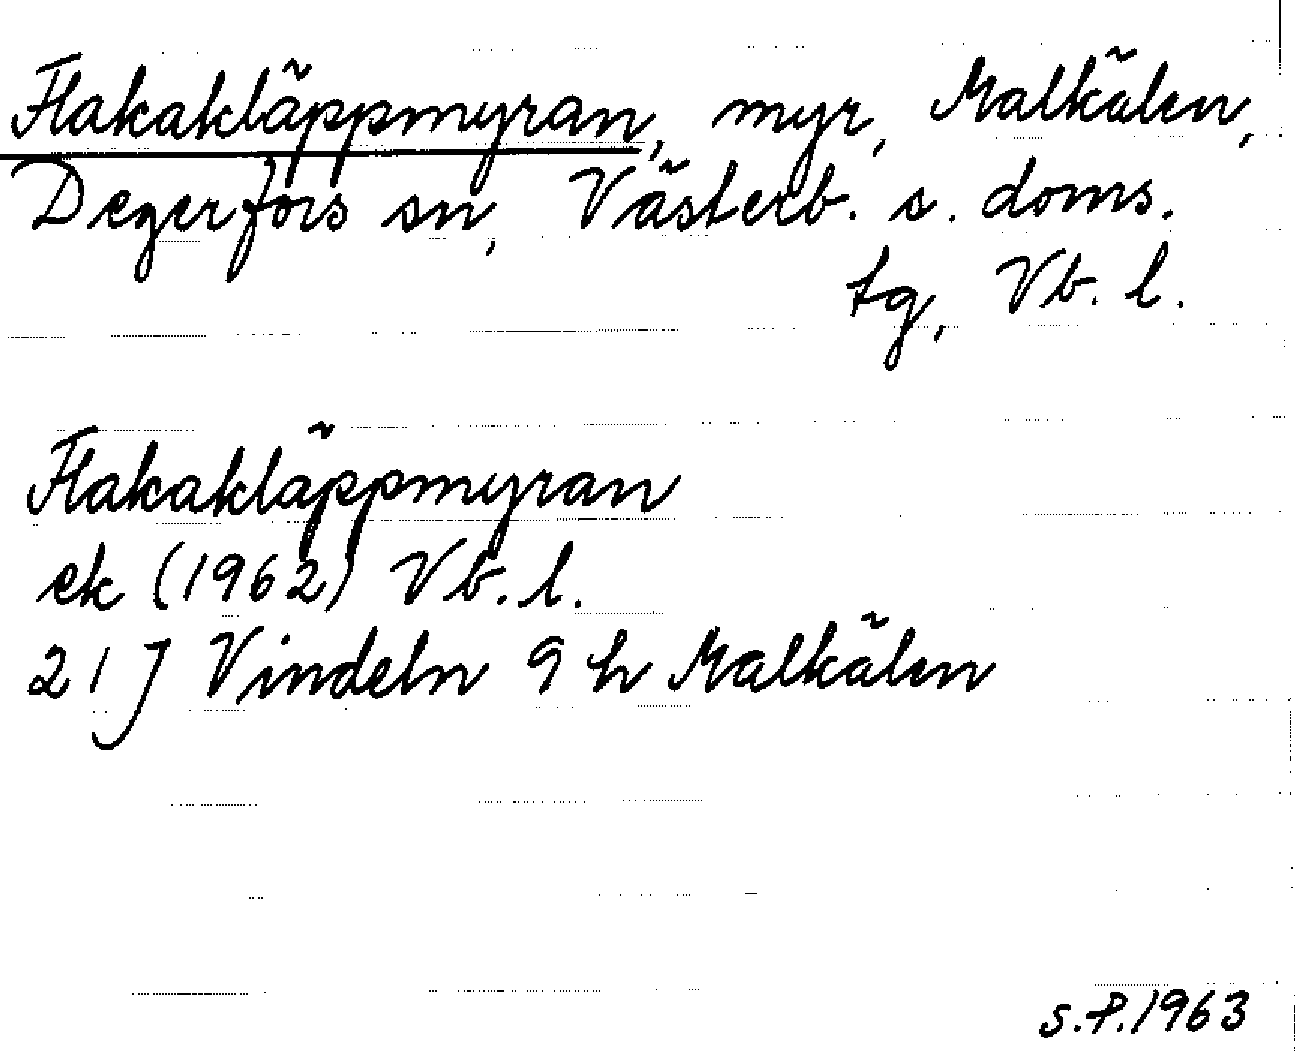 Flakakläppmyran, myr, Malkälen,
Degerfors sn, Västerb. s. doms.
tg, Vb. l.
Flakakläppmyran
ek (1962) Vb. l.
21 J Vindeln 9 h Malkälen
S.P. 1963